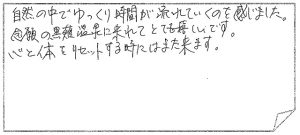 自然の中でゆっくり時間が流れていくのを感じました。
念願の黒薙温泉に来れてとても嬉しいです。
心と体をリセットする時にはまた来ます。